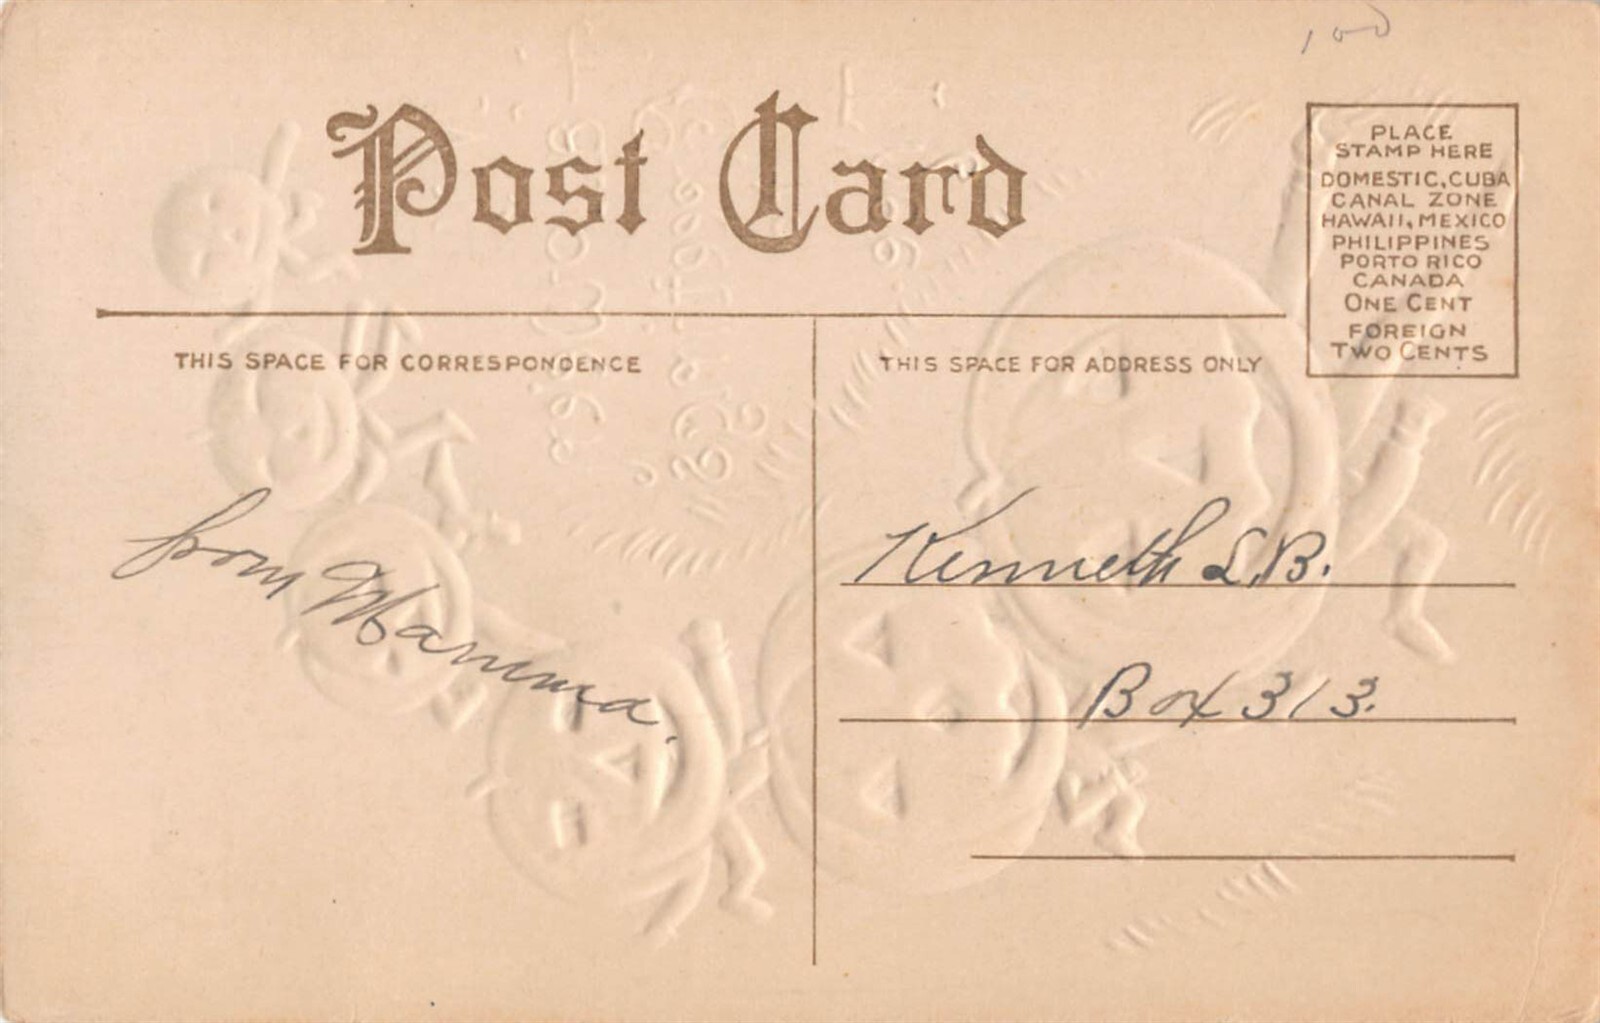 100
Post Card
PLACE
STAMP HERE
DOMESTIC, CUBA
CANAL ZONE
HAWAII, MEXICO
PHILIPPINES
PORTO RICO
CANADA
ONE CENT
FOREIGN
TWO CENTS
THIS SPACE FOR CORRESPONDENCE
THIS SPACE FOR ADDRESS ONLY
from Mamma.
Kenneth L.B.
Box 313.